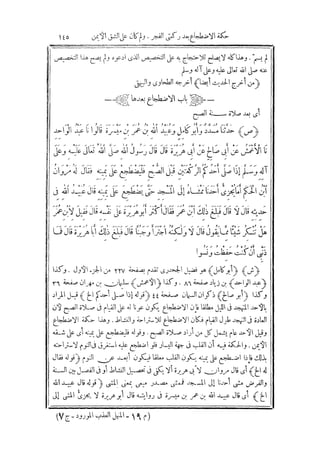 حكمة الاضطجاع بعد ركعتى الفجر . ولو كان على الشق الأيمن ١٤٥
لم يسم . وهذا كله لا يصلح للاحتجاج به على التخصيص الذى ادعوه ولم يصح هذا التخصيص
عنه صلى الله تعالى عليه وعلى آله وسلم
﴿من أخرج الحديث أيضا﴾ أخرجه الطحاوى والبيهقى
باب الاضطجاع بعدها
أى بعد صلاة سنة الصبح
﴿ص﴾ حَدَّثَنَا مُسَدَّدٌ وَأَبُو كَامِلٍ وَعُبَيْدُ اللهِ بْنُ عُمَرَ بْنِ مَيْسَرَةَ قَالُوا نَا عَبْدُ الْوَاحِدِ
نَا الْأَعْمَشُ عَنْ أَبِي صَالِحٍ عَنْ أَبِي هُرَيْرَةَ قَالَ قَالَ رَسُولُ اللهِ صَلَّى اللهُ تَعَالَى عَلَيْهِ وَعَلَى
آلِهِ وَسَلَّمَ إِذَا صَلَّى أَحَدُكُمُ الرَّكْعَتَيْنِ قَبْلَ الصُّبْحِ فَلْيَضْطَجِعْ عَلَى يَمِينِهِ فَقَالَ لَهُ مَرْوَانُ
ابْنُ الْحَكَمِ أَمَا يُجْزِئُ أَحَدَنَا مَمْشَاهُ إِلَى الْمَسْجِدِ حَتَّى يَضْطَجِعَ عَلَى يَمِينِهِ قَالَ عُبَيْدُ اللهِ فِي
حَدِيثِهِ قَالَ لَا قَالَ فَبَلَغَ ذَلِكَ ابْنَ عُمَرَ فَقَالَ أَكْثَرَ أَبُو هُرَيْرَةَ عَلَى نَفْسِهِ قَالَ فَقِيلَ لِابْنِ عُمَرَ
هَلْ تُنْكِرُ شَيْئًا مِمَّا يَقُولُ قَالَ لَا وَلَكِنَّهُ اجْتَرَأَ وَجَبُنَّا قَالَ فَبَلَغَ ذَلِكَ أَبَا هُرَيْرَةَ قَالَ فَمَا
ذَنْبِي إِنْ كُنْتُ حَفِظْتُ وَنَسُوا
﴿ش﴾ ﴿أبو كامل﴾ هو فضيل الجحدرى تقدم بصفحة ٢٣٧ من الجزء الأول . وكذا
﴿عبد الواحد﴾ بن زياد صفحة ٨٦ . وكذا ﴿الأعمش﴾ سليمان بن مهران صفحة ٣٦
وكذا ﴿أبو صالح﴾ ذكوان السمان صفحة ٤٤ ﴿قوله إذا صلى أحدكم الخ﴾ قيل المراد
بالأحد المتهجد فى الليل مطلقا فإن الاضطجاع يكون عونا له على القيام فى صلاة الصبح لأن
العادة فى المتهجد طول القيام فكان الاضطجاع للاستراحة والنشاط . وهذا حكمة الاضطجاع
وقيل الأحد عام يشمل كل من أراد صلاة الصبح . وقوله فليضطجع على يمينه أى على شقه
الأيمن . والحكمة فيه أن القلب فى جهة اليسار فلو اضطجع عليه استغرق فى النوم لاستراحته
بذلك فإذا اضطجع على يمينه يكون القلب معلقا فيكون أبعد عن النوم ﴿قوله فقال
له الخ﴾ أى قال مروان لأبى هريرة ألا يكفى فى تحصيل النشاط أو فى الفصل بين السنة
والفرض مشى أحدنا إلى المسجد فممشى مصدر ميمى بمعنى المشى ﴿قوله قال عبيد الله
الخ﴾ أى قال عبيد الله بن عمر بن ميسرة فى روايته قال أبو هريرة لا يجزئ المشى إلى
(م ١٩ - المنهل العذب المورود - ج ٧)